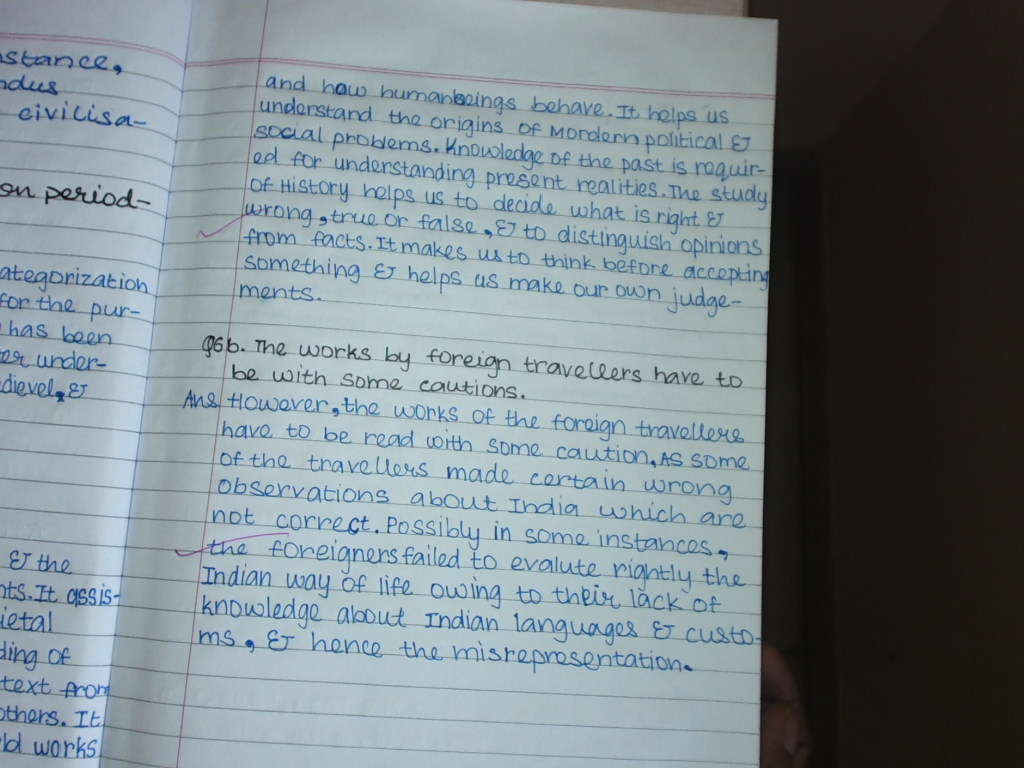 stance,
ndus
civilisa-
on period-
ategorization
for the pur-
has been
er under-
dievel, &
& the
nts. It assis-
ietal
ding of
text from
others. It
ld works
and how humanbeings behave. It helps us
understand the origins of Mordern political &
social problems. Knowledge of the past is requir-
ed for understanding present realities. The study
of History helps us to decide what is right &
wrong, true or false, & to distinguish opinions
from facts. It makes us to think before accepting
something & helps us make our own judge-
ments.
Q6b. The works by foreign travellers have to
be with some cautions.
Ans However, the works of the foreign travellers
have to be read with some caution, As some
of the travellers made certain wrong
observations about India which are
not correct. Possibly in some instances,
the foreigners failed to evalute rightly the
Indian way of life owing to their lack of
knowledge about Indian languages & custo-
ms, & hence the misrepresentation.